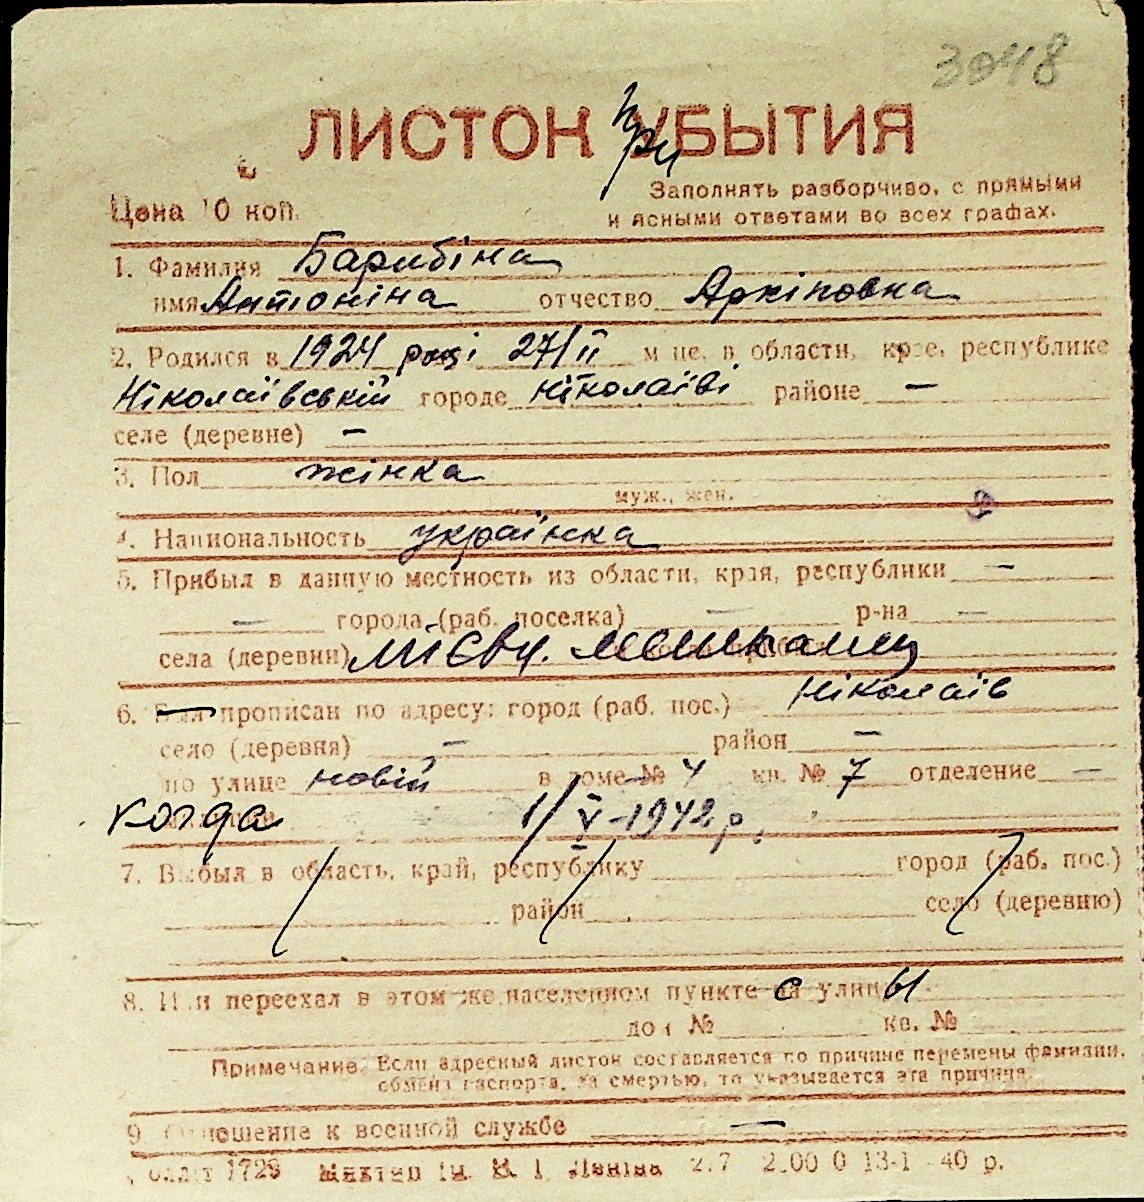 3048
ЛИСТОК При УБЫТИЯ
Цена 10 коп.
Заполнять разборчиво, с прямыми
и ясными ответами во всех графах.
1. Фамилия Барибіна
имя Антоніна отчество Архіповна
2. Родился в 1924 році 27/II м-це, в области, крае, республике
Ніколаївській городе Ніколаїві районе —
селе (деревне) —
3. Пол жінка
муж., жен.
4. Национальность українка
5. Прибыл в данную местность из области, края, республики —
— города (раб. поселка) — р-на —
села (деревни) місєвч. мешканец
6. Был прописан по адресу: город (раб. пос.) Ніколаїв
село (деревня) — район —
по улице новій в доме № 4 кв. № 7 отделение —
когда 1/V-1942 р.
7. Выбыл в область, край, республику город (раб. пос.)
район село (деревню)
8. Или переехал в этом же населенном пункте с на улицы
дом № кв. №
Примечание. Если адресный листок составляется по причине перемены фамилии,
обмена паспорта, за смертью, то указывается эта причина.
9. Отношение к военной службе —
1729 ім. В. І. Леніна 2.00 0 13-1 40 р.